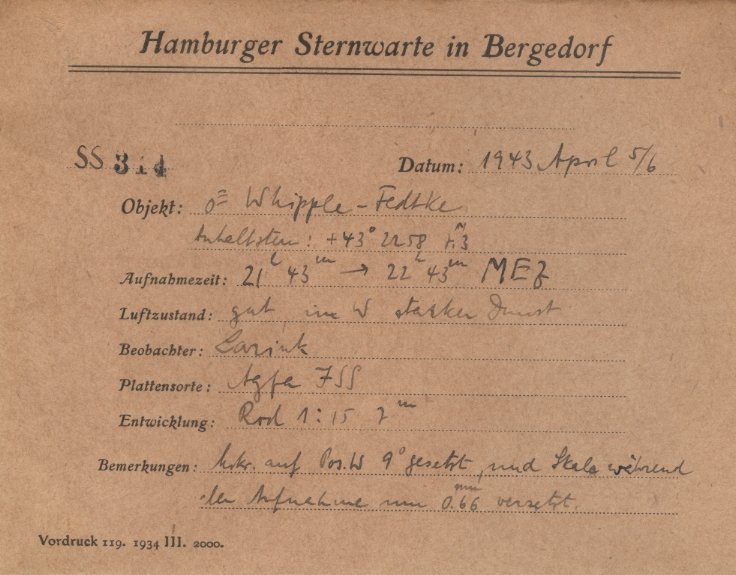 Hamburger Sternwarte in Bergedorf
SS 314
Datum: 1943 April 5/6
Objekt: Whipple-Fedtke
Anhaltstern: +43° 2258
Aufnahmezeit: 21h 43m → 22h 43m MEZ
Luftzustand: gut, im W starker Dunst
Beobachter: Larink
Plattensorte: Agfa ISS
Entwicklung: Rod 1:15 7m
Bemerkungen: Mikr. auf Pos.W 9° gesetzt, und Skala während
der Aufnahme um 0.66 mm versetzt.
Vordruck 119. 1934 III. 2000.